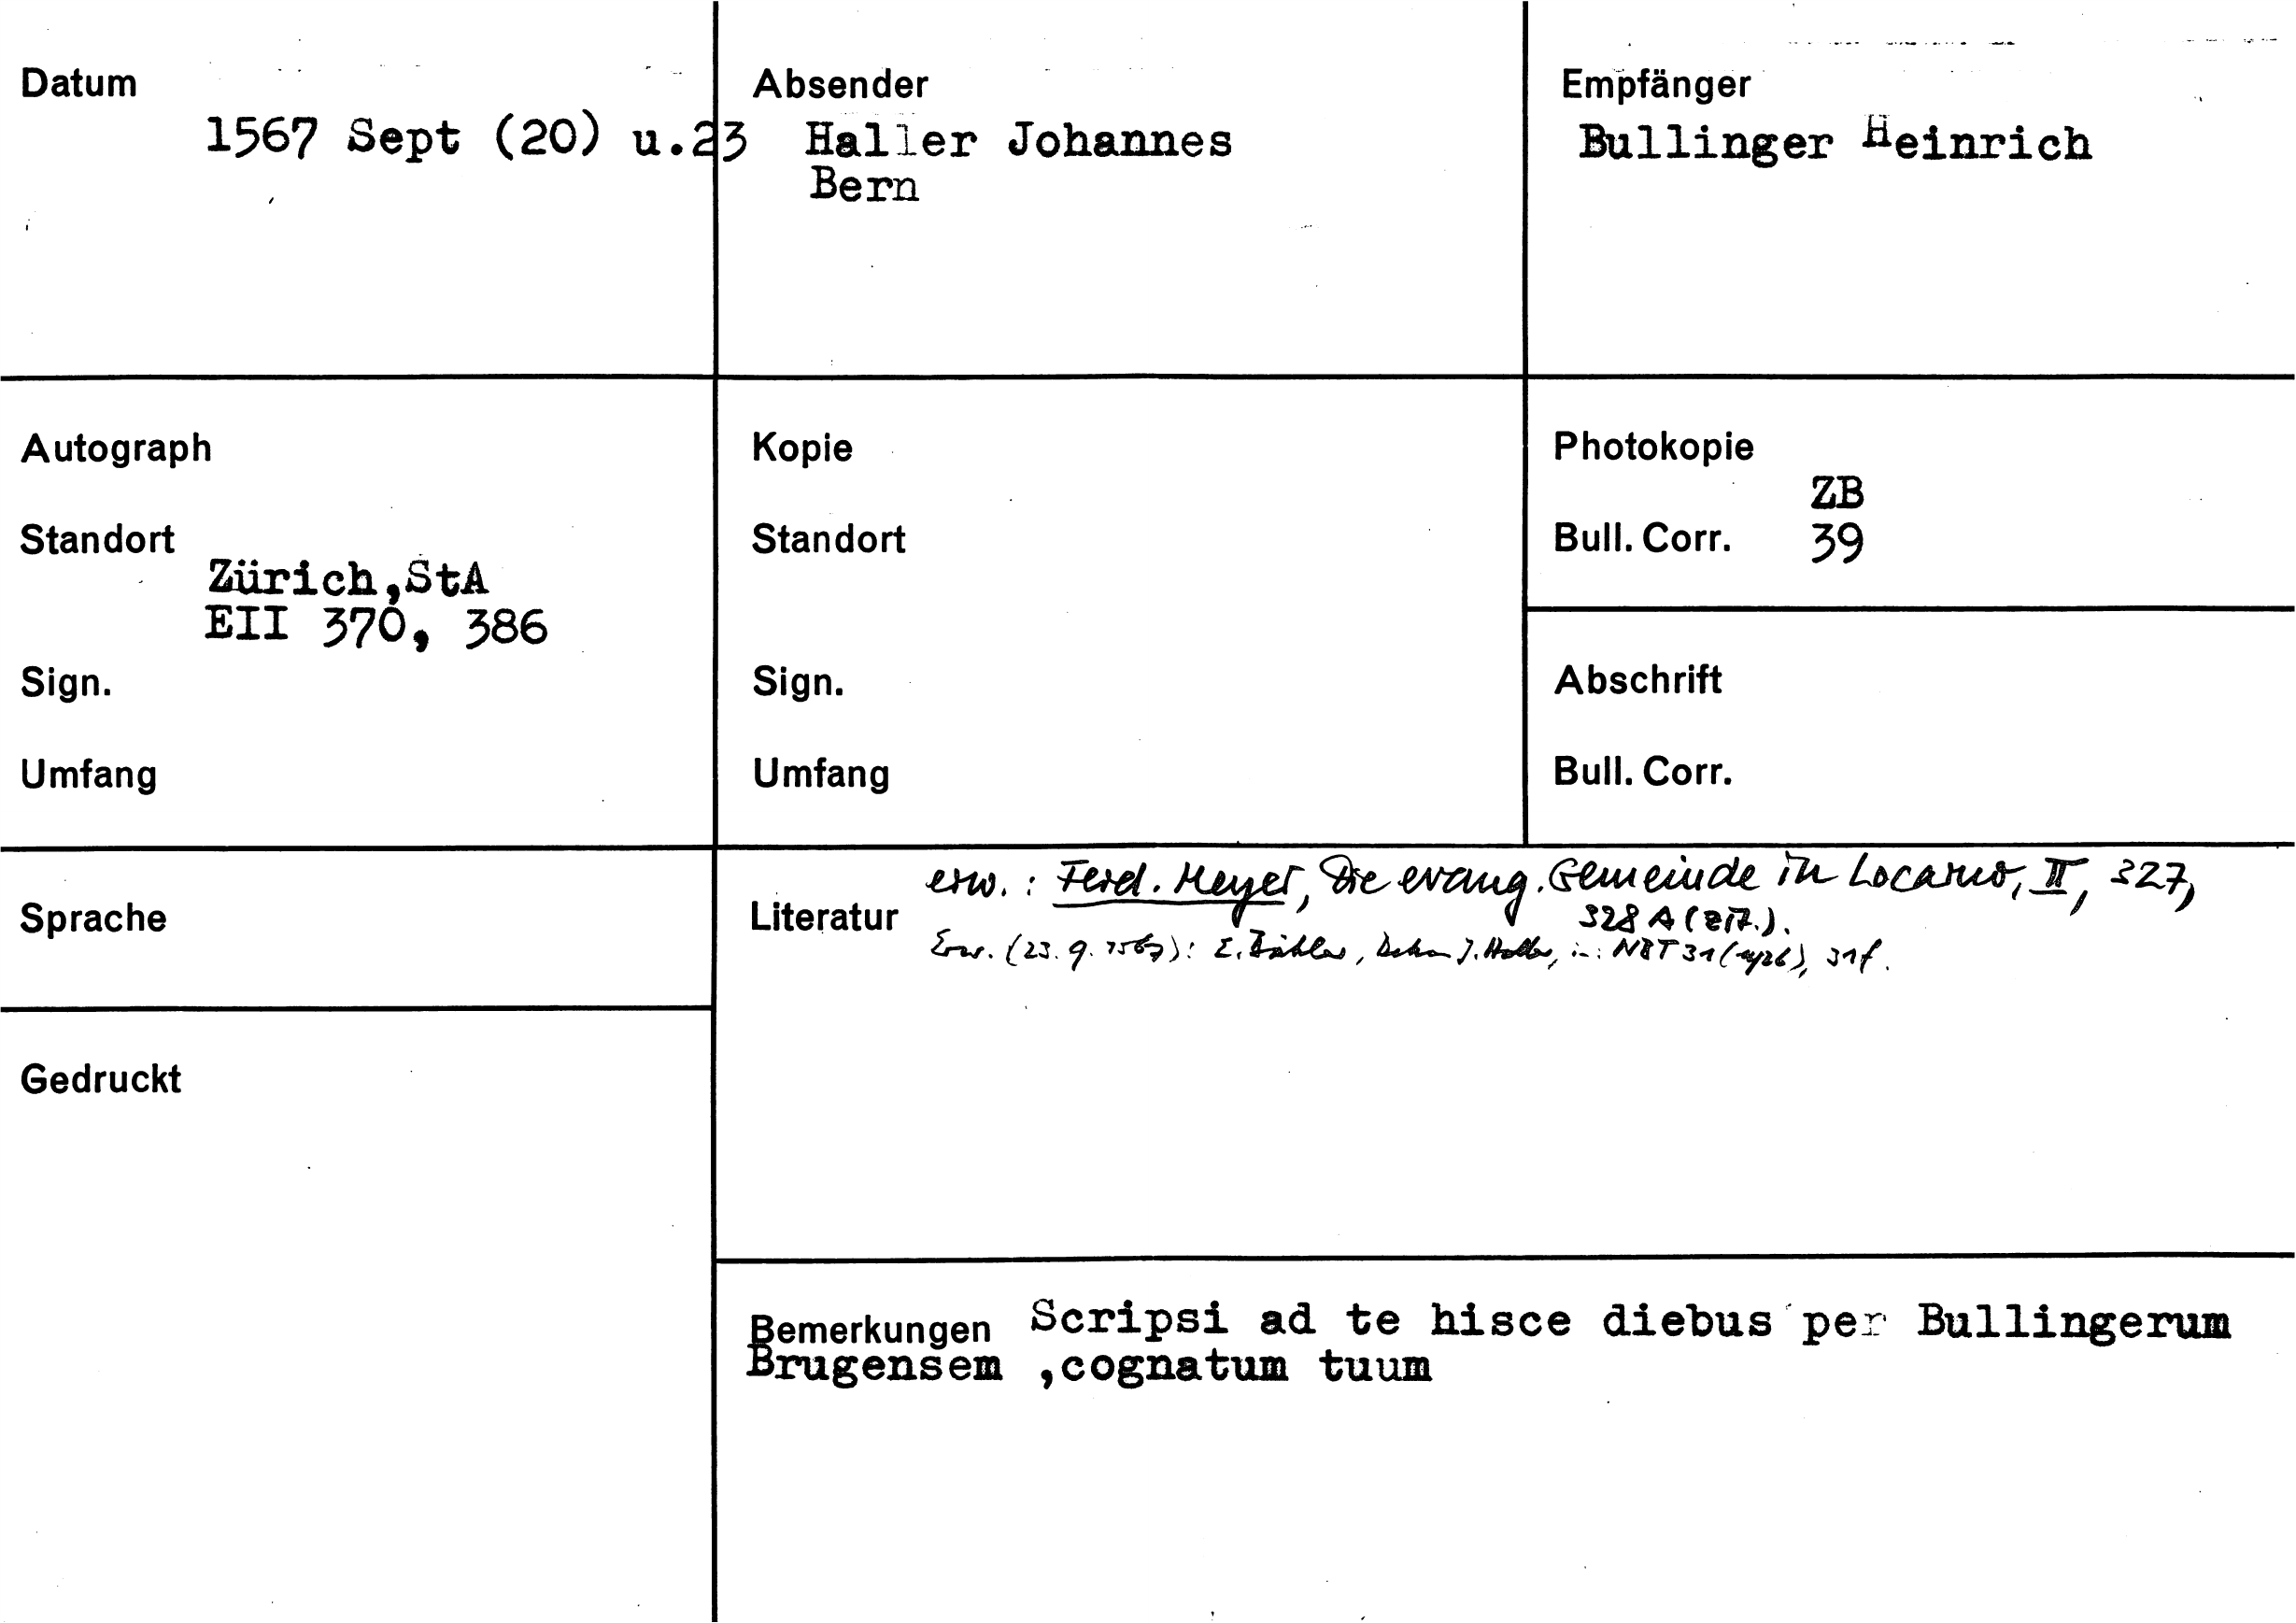 Datum
1567 Sept (20) u.23
Absender
Haller Johannes
Bern
Empfänger
Bullinger Heinrich
Autograph
Standort
Zürich,StA
EII 370, 386
Sign.
Umfang
Kopie
Standort
Sign.
Umfang
Photokopie
ZB
Bull. Corr. 39
Abschrift
Bull. Corr.
Sprache
Gedruckt
Literatur
erw. : Ferd. Meyer, Die evang. Gemeinde in Locarno, II, 327,
328 A (zit.).
Erw. (23. 9. 1567): E. Bähler, Dekan J. Haller, in: NBT 31 (1926), 31f.
Bemerkungen Scripsi ad te hisce diebus per Bullingerum
Brugensem ,cognatum tuum